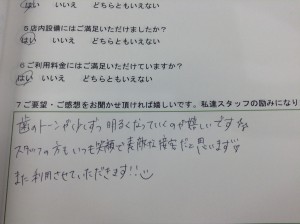 はい いいえ どちらともいえない
5 店内設備にはご満足いただけましたか?
はい いいえ どちらともいえない
6 ご利用料金にはご満足いただけていますか?
はい いいえ どちらともいえない
7 ご要望・ご感想をお聞かせ頂ければ嬉しいです。私達スタッフの励みになり
歯のトーンが少しずつ明るくなっていくのが嬉しいです
スタッフの方もいつも笑顔で素敵な接客だと思います
また利用させていただきます!!